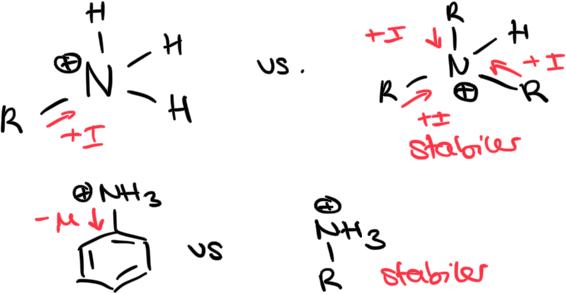 H
H
⊕ N
R
H
+I
vs.
R
+I
H
N
+I
R
⊕
R
+I
stabiler
⊕ NH₃
-M
vs
⊕
NH₃
R
stabiler